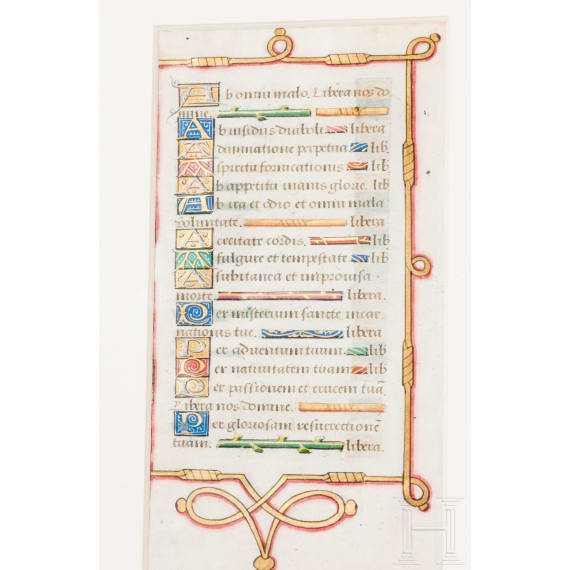 Ab omni malo. Libera nos do
mine.
Ab insidiis diaboli libera
A damnatione perpetua lib
A spiritu fornicationis lib
Ab appetitu inanis glorie. lib
Ab ira et odio et omni mala
voluntate. libera
A cecitate cordis. lib
A fulgure et tempestate lib
A subitanea et improvisa
morte. libera.
Per misterium sancte incar
nationis tue. libera
Per adventum tuum lib
Per nativitatem tuam lib
Per passionem et crucem tuā.
Libera nos domine.
Per gloriosam resurrectionē
tuam. libera.
H H